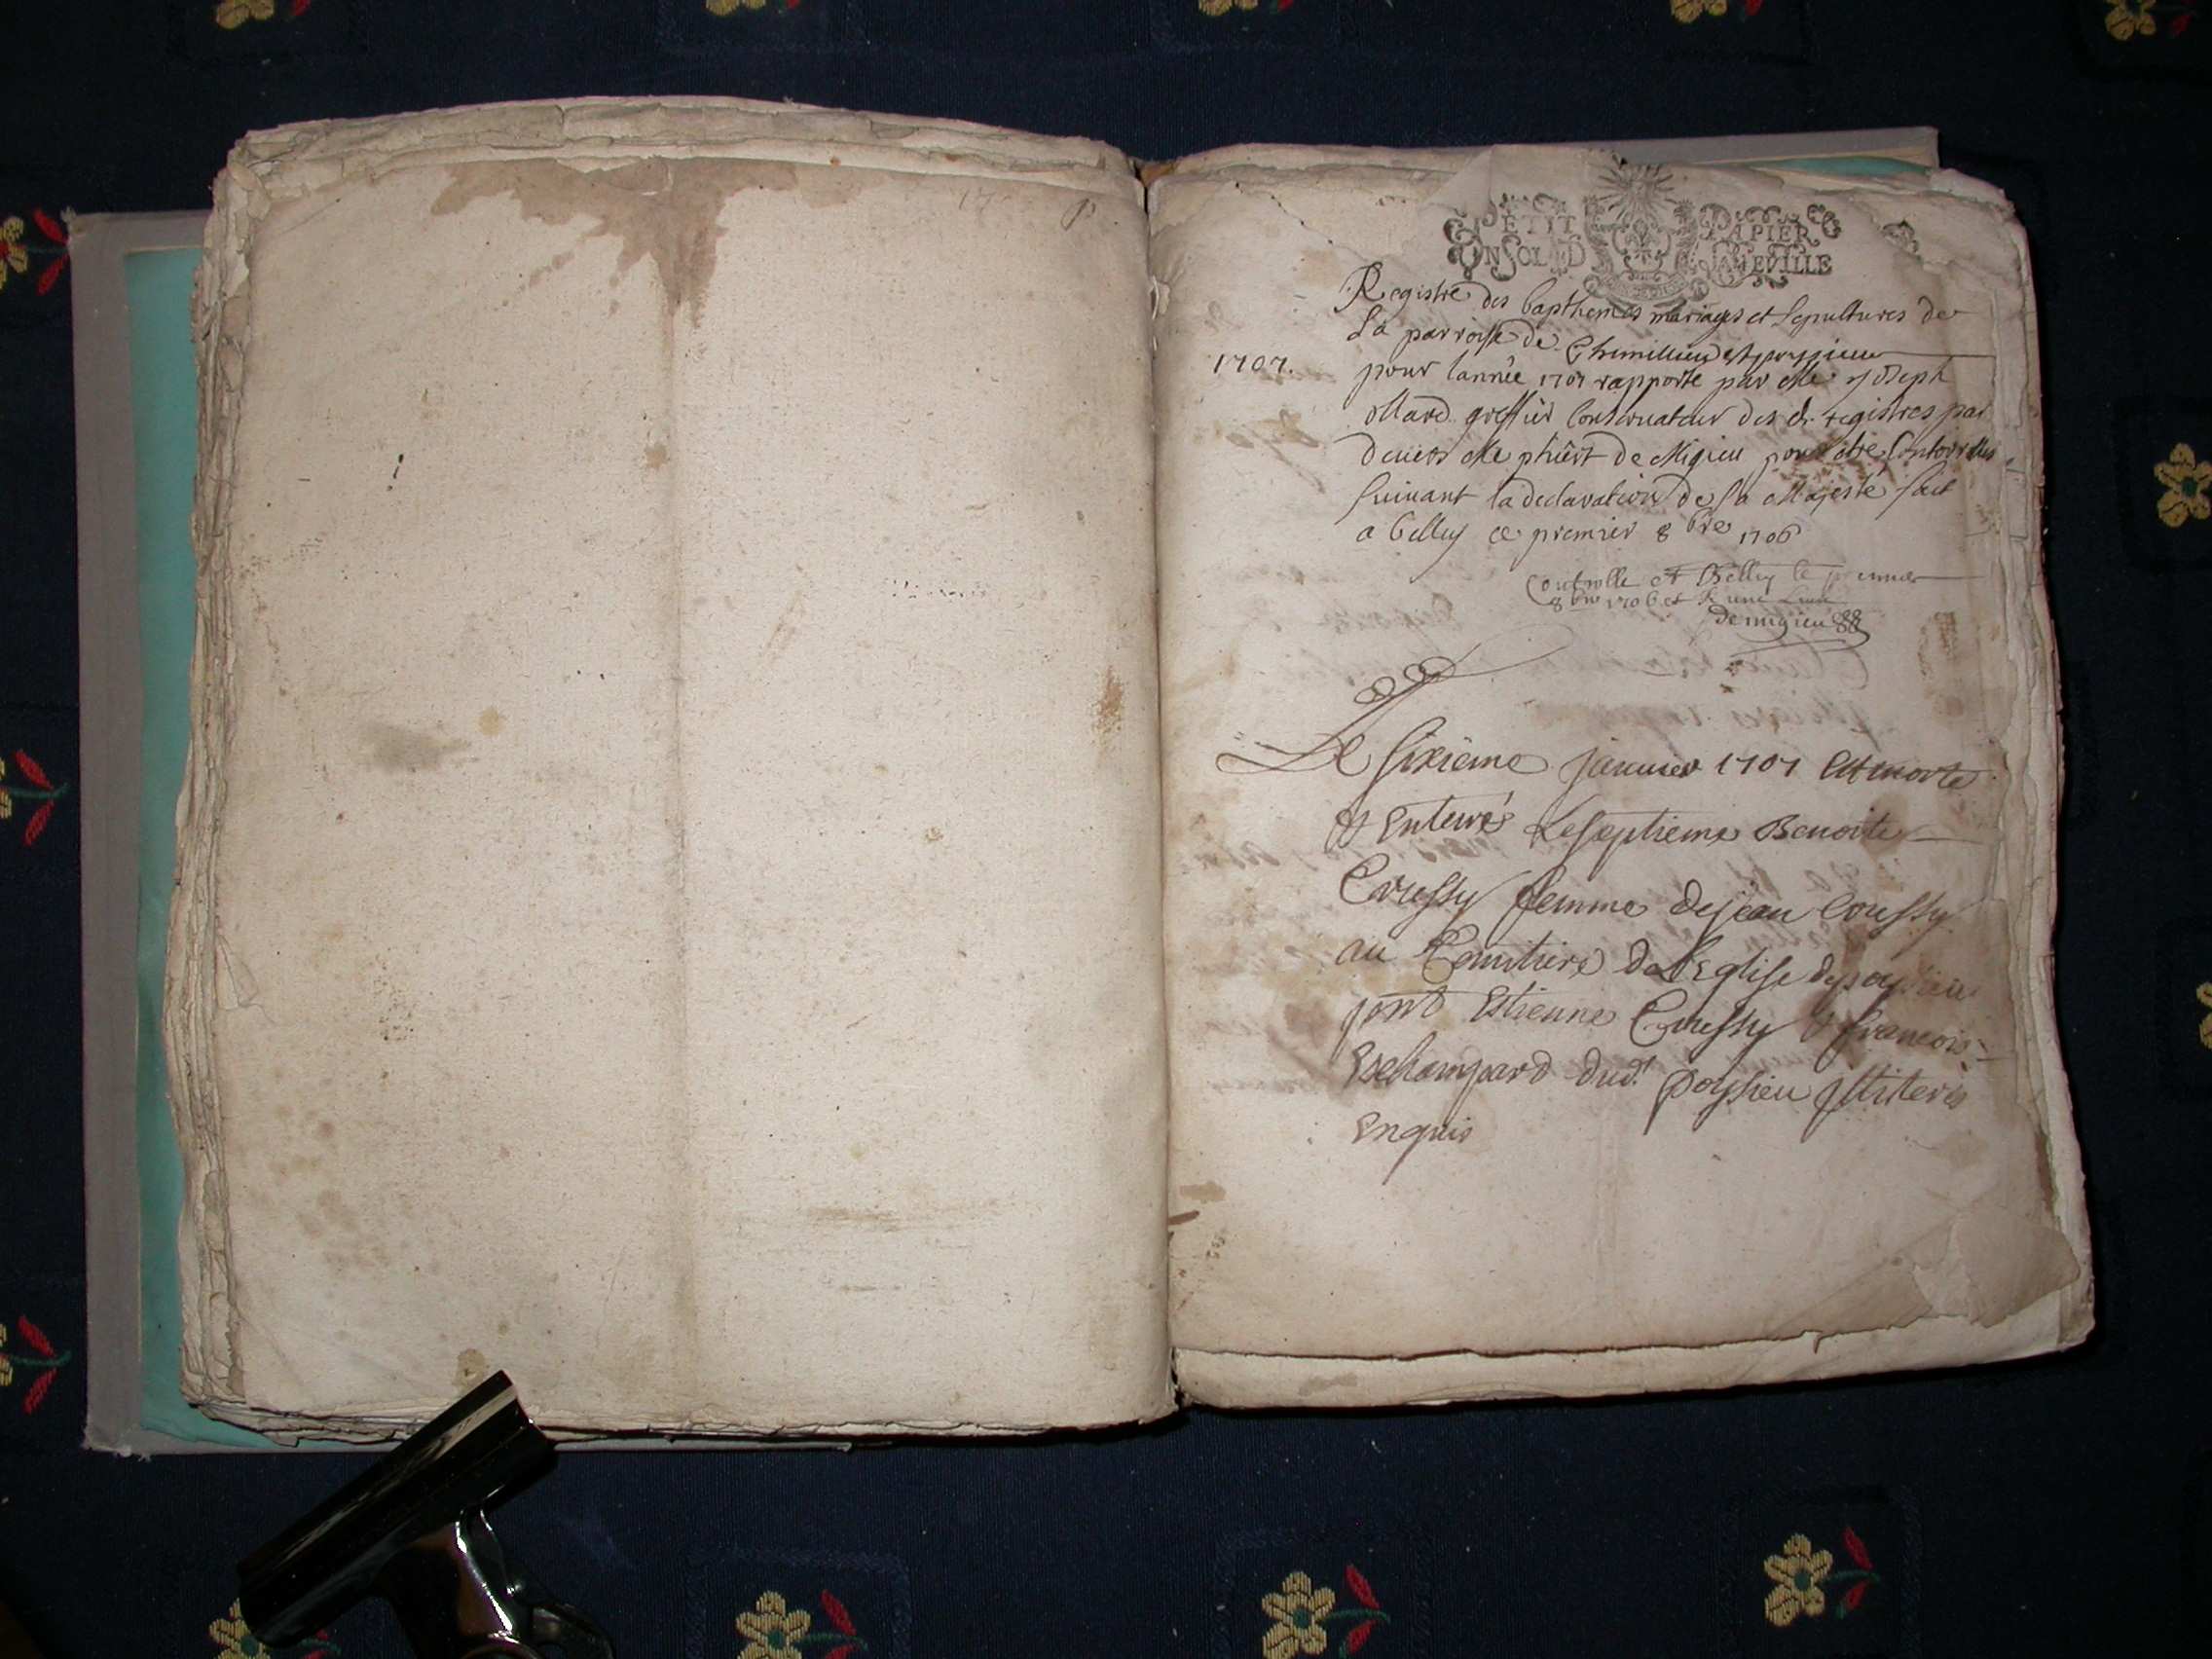 PETIT PAPIER
UN SOL D LA FEVILLE
Registre des bapthemes mariages et sepultures de
La parroisse de Chemillieu et poyssieu
1707.
pour lannée 1707 rapporte par Me Joseph
Mard greffier Conseruateur des d. registres par
deuers Me de Migieu pour être Controrolles
suiuant la declaration de sa Majesté fait
a belley ce premier 8bre 1706
Controlle et Belley le premier
8bre 1706 et
demigieu
Le sixieme januier 1707 est morte
& Enterré Le septieme Benoite
Crussy femme de jean Coussy
au Cemitiere de L'Eglise de poyssieu
pnt Estienne Crussy & francois
Dechampard dud. poyssieu Illiteres
Enquis